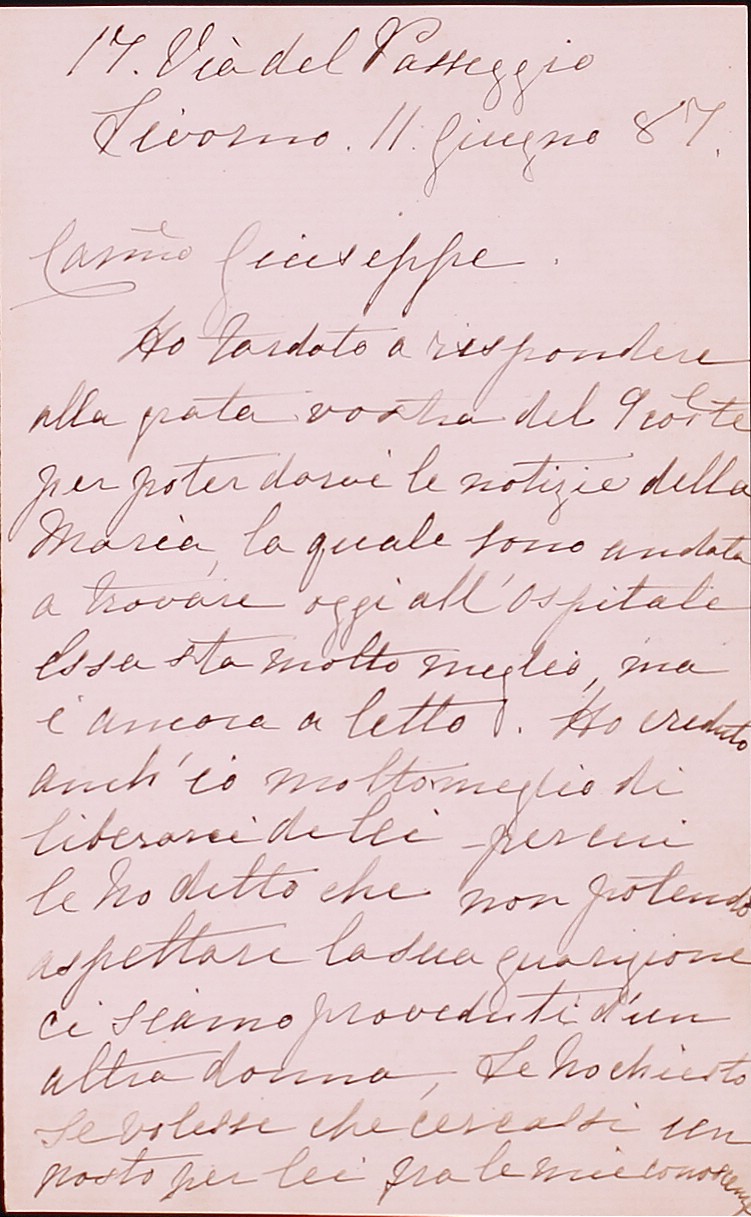 17. Via del Passeggio
Livorno. 11. Giugno 87.
Carmo Giuseppe.
Ho tardato a rispondere
alla grata vostra del 9 corte
per poter darvi le notizie della
Maria, la quale sono andata
a trovare oggi all'Ospitale
Essa sta molto meglio, ma
è ancora a letto. Ho creduto
anch'io molto meglio di
liberarci di lei per cui
le ho detto che non potendo
aspettare la sua guarizione
ci siamo proveduti d'un
altra donna, Le ho chiesto
se volesse che cercassi un
posto per lei fra le mie